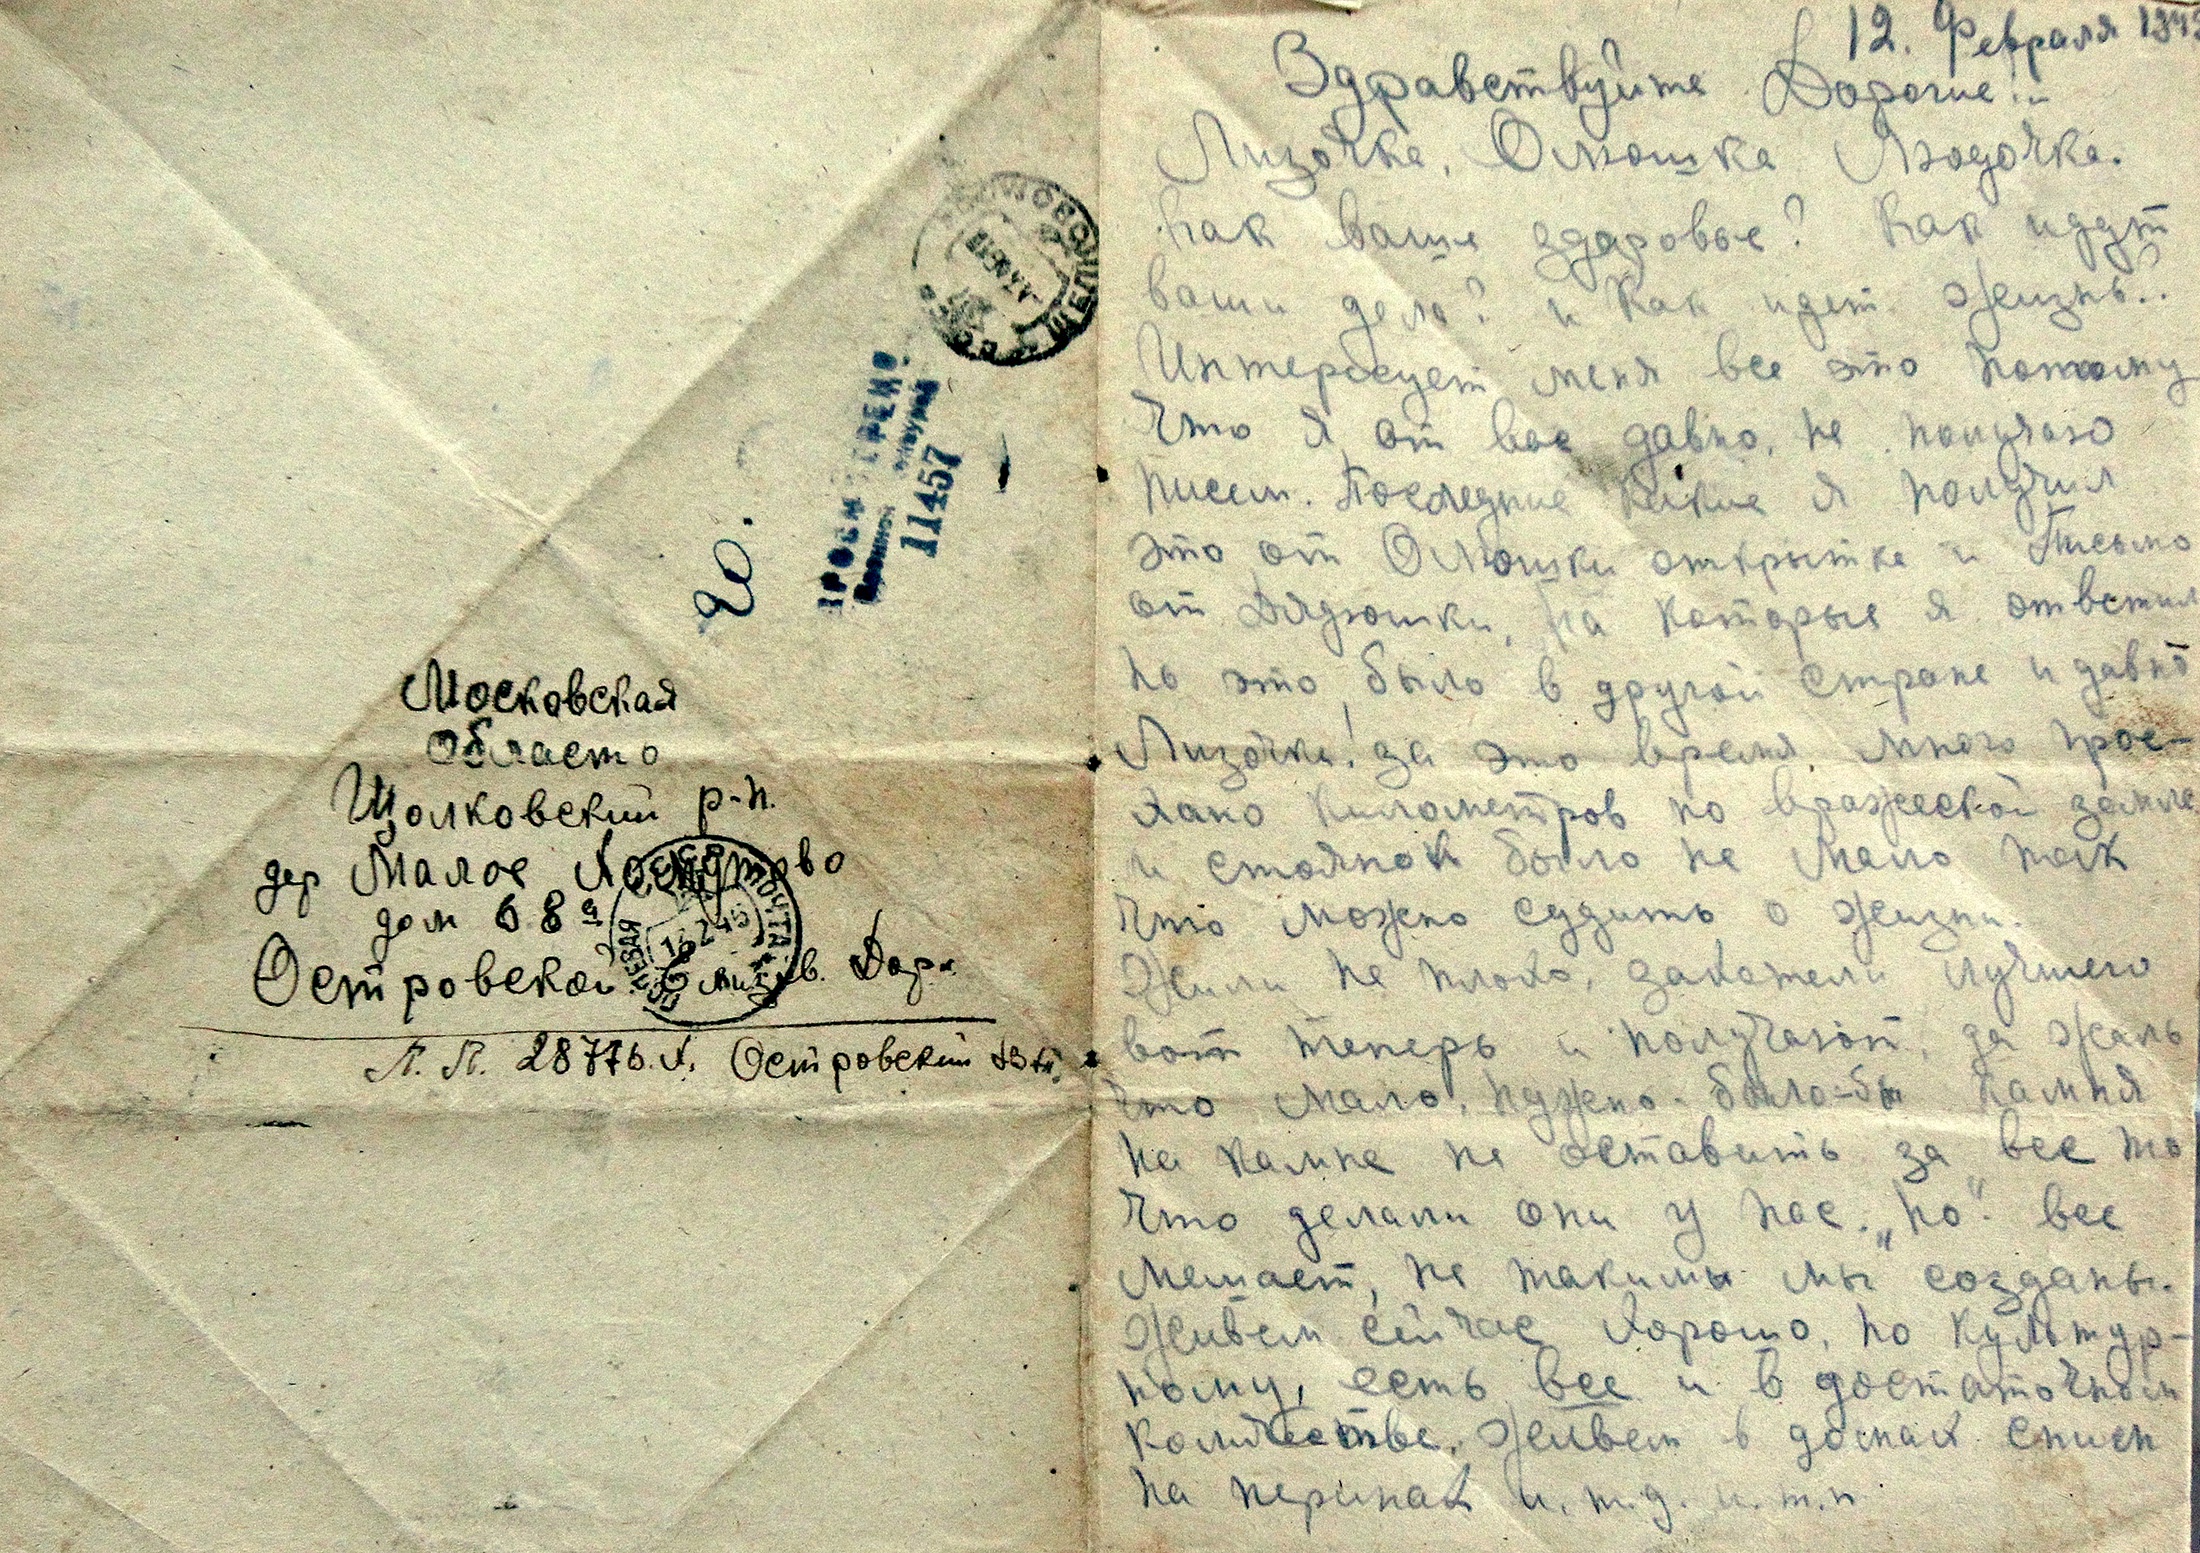 Московская
область
Щолковский р-н.
дер Малое
дом 68а
Островской Елизав. Дор.
П. П. 28776.А. Островский
ПРОСМОТРЕНО
Военной Цензурой
11457
ПОЛЕВАЯ ПОЧТА
12 2 45
ЩЕЛКОВО
12. Февраля 1945
Здравствуйте Дорогие!..
Лизочка, Олюшка Людочка.
Как ваше здаровье? Как идут
ваши дела? и как идет жизнь?.
Интересует меня все это потому
что я от вас давно, не получаю
писем. Последние какие я получил
это от Олюшки открытка и Письмо
от Дядюшки, на которые я ответил
но это было в другой стране и давно
Лизочка! за это время, много прое-
хано километров по вражеской земле
и стоянок было не мало так
что можно судить о жизни.
Жили не плохо, захотели лучшего
вот теперь и получают, да жаль
что мало, нужно-было-бы камня
на камне не оставить за все то
что делали они у нас. „но" все
мешает, не такими мы созданы.
Живем сейчас хорошо, по культур-
ному, есть все и в достаточном
количестве, Живем в домах спим
на перинах и.т.д. и.т.п.